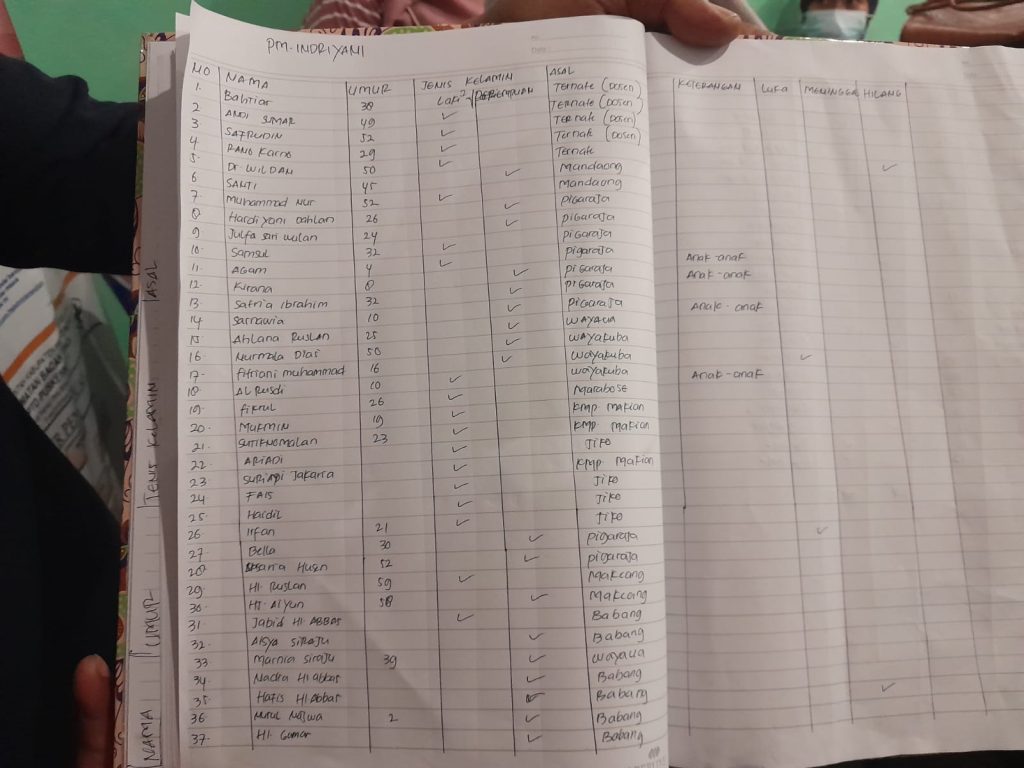 PM. INDRIYANI
NO NAMA UMUR JENIS KELAMIN ASAL
LAKI² / PEREMPUAN KETERANGAN LUKA MENINGGAL HILANG
1. Bahtiar 38 Ternate (Dosen)
2 ANDI SUMAR 49 Ternate (Dosen)
3 SAFRUDIN 52 Ternate (Dosen)
4 RANO Karno 29 Ternate (Dosen)
5. Dr WILDAN 50 Ternate
6 SANTI 45 Mandaong
7 Muhammad Nur 52 Mandaong
8 Hardiyani Dahlan 26 Pigaraja
9 Julfa sari wulan 24 Pigaraja
10. Samsul 32 Pigaraja
11. Agam 4 Pigaraja Anak-anak
12. Kirana 8 Pigaraja Anak-anak
13. Satria Ibrahim 32 Pigaraja
14 Sarnawia 10 Pigaraja Anak-anak
15 Ahlana Ruslan 25 WAYAUA
16. Nurmala Dias 50 wayakuba
17. Fitriani Muhammad 16 wayakuba
18. AL Rusdi 10 wayakuba Anak-anak
19. Fikrul 26 Marabose
20. MUKMIN 19 KMP makian
21. SUTIKNOMALAN 23 KMP makian
22. ARIADI Jiko
23. SURIADI Jakaria KMP Makian
24. FAIS Jiko
25. Hardil Jiko
26. Irfan 21 Jiko
27. Bella 30 Pigaraja
28. Husen 52 Pigaraja
29. HI. Ruslan 59 Makcang
30. HI. Alyun 58 Makcang
31. Jabid HI. ABBAS Babang
32. Aisya Siraju Babang
33. Marnia Siraju 39 wayaua
34. Nadra HI abbas Babang
35. Hafis HI Abbas Babang
36. Nurul Najwa 2 Babang
37. HI. Gumar Babang
NAMA UMUR JENIS KELAMIN ASAL